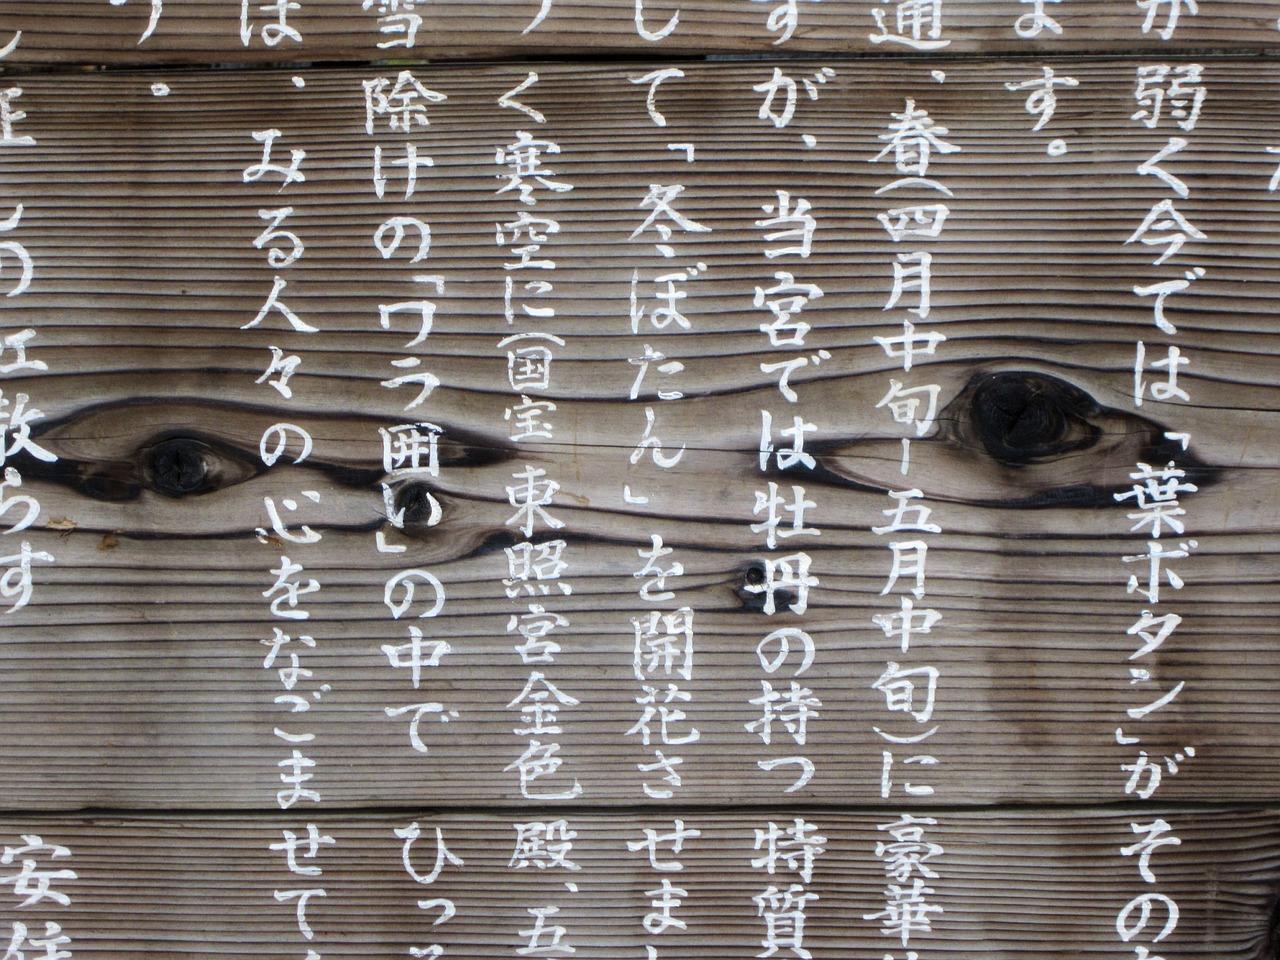 弱く今では「葉ボタン」がその
ます。
通、春(四月中旬ー五月中旬)に豪華
すが、当宮では牡丹の持つ特質
して「冬ぼたん」を開花させまし
く寒空に(国宝東照宮金色殿、五
雪除けの「ワラ囲い」の中でひっそ
は、みる人々の心をなごませて
う。
散らす安住